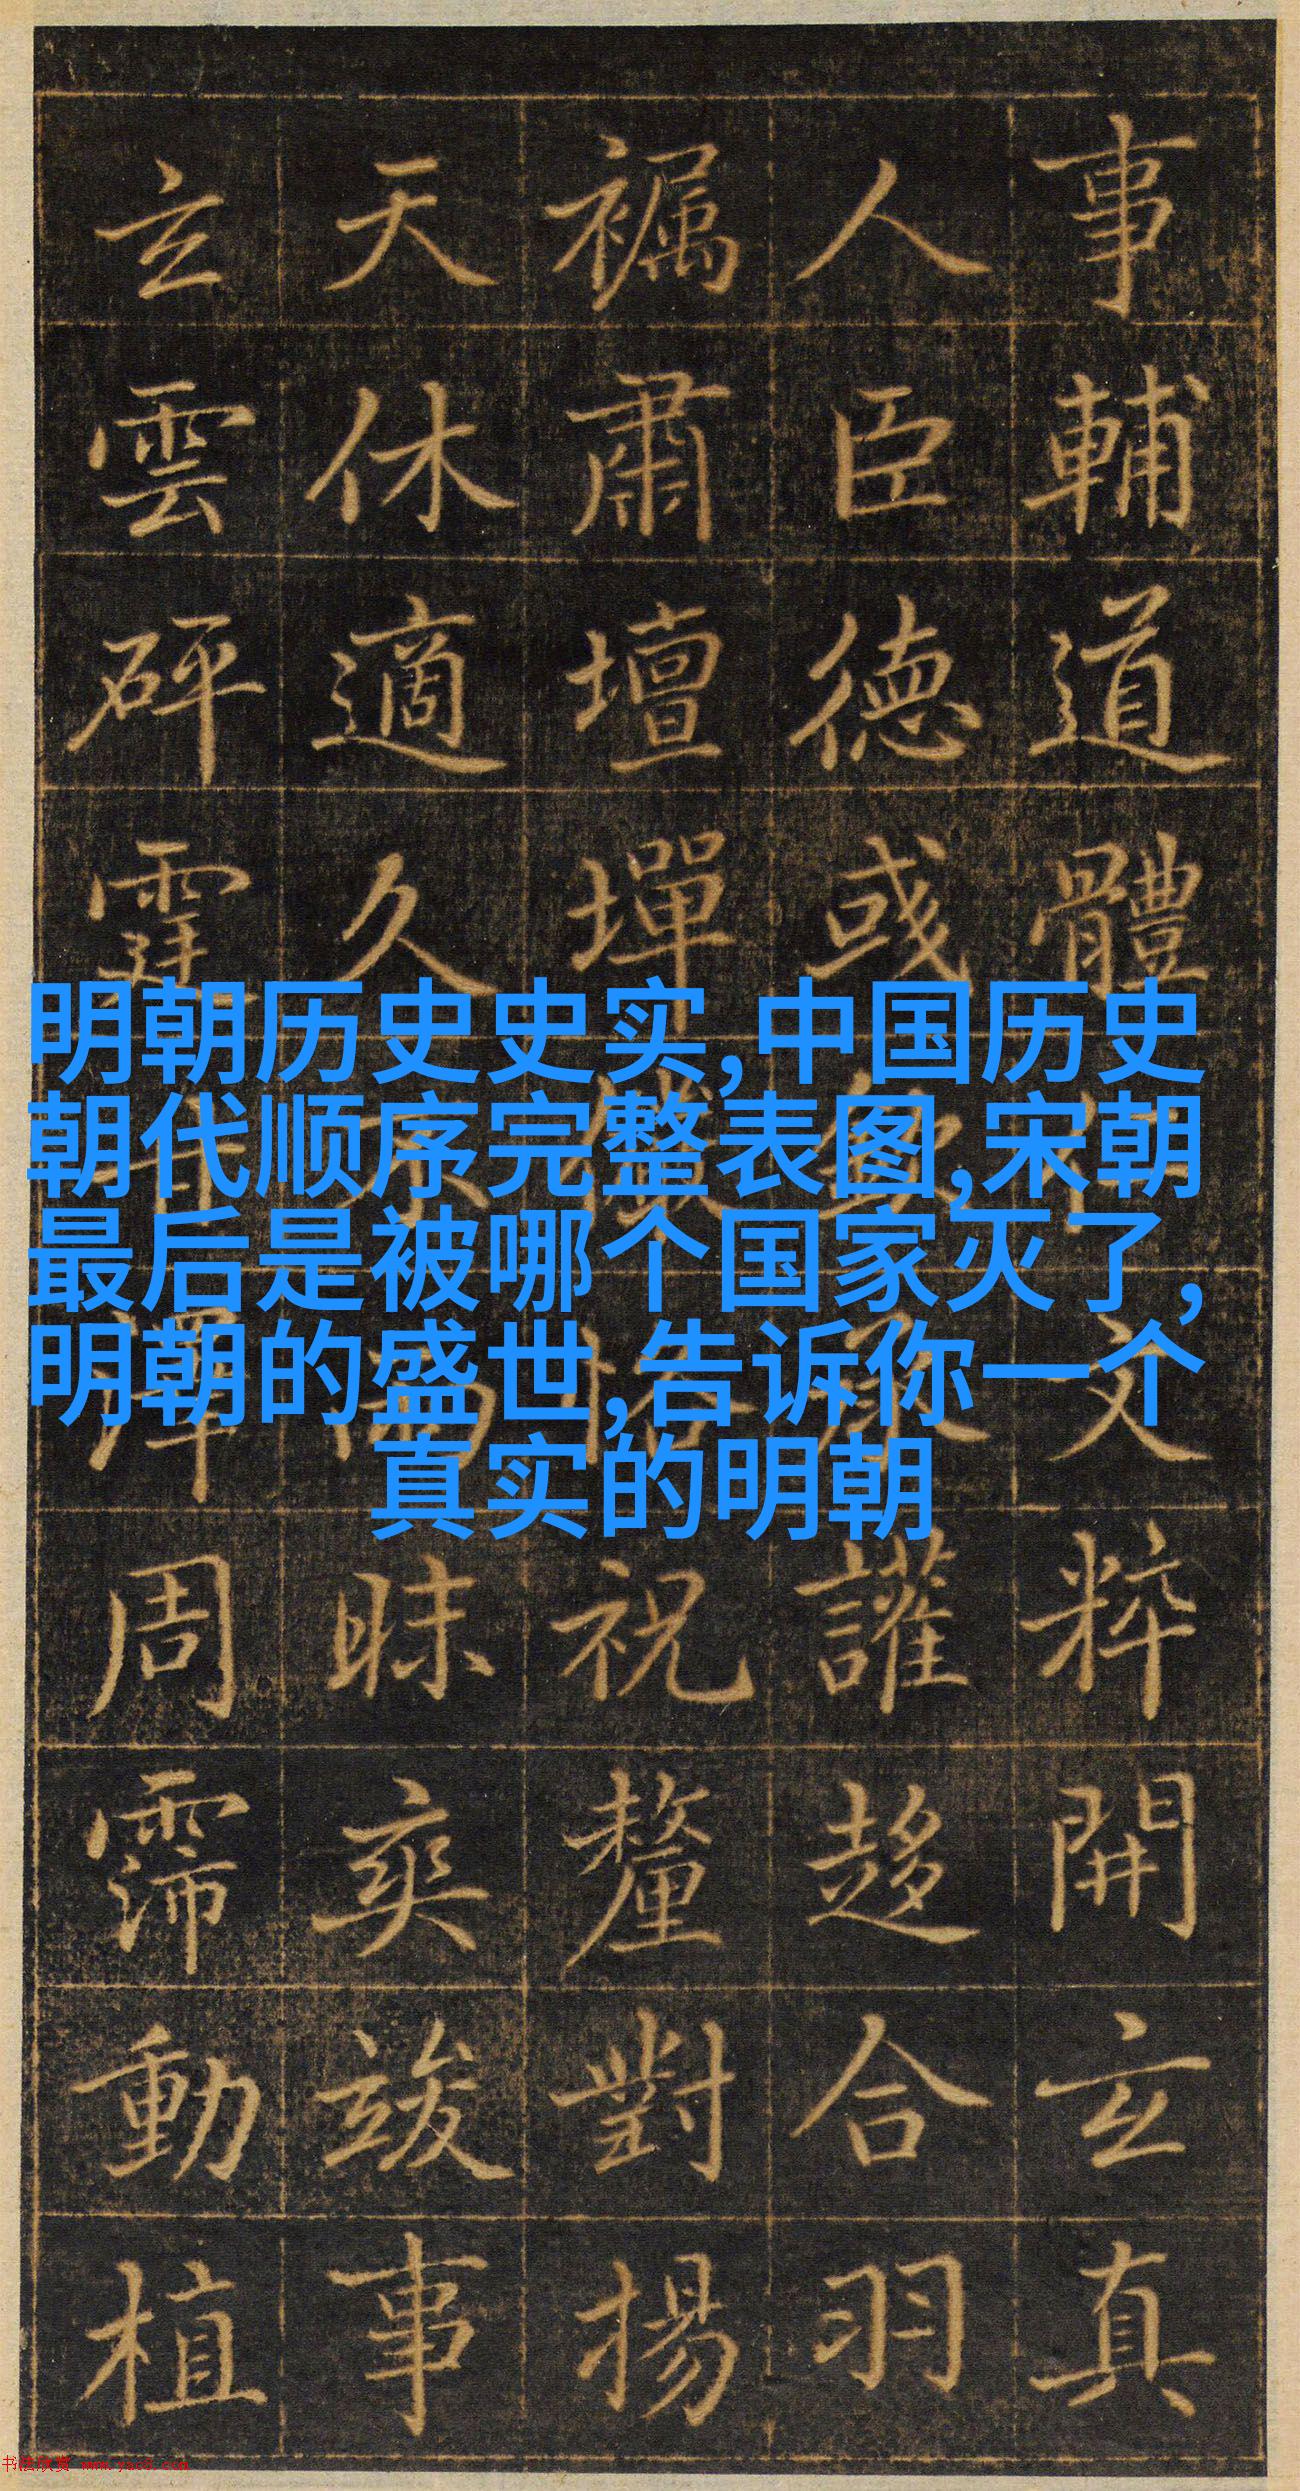 事輔道體文粹開玄真
人臣德或讙趍合羽
肅壇墠儀恪祝釐對揚
天休適久不雨昧爽竣事
玄雲砰霆甘澤周霈動植
明朝历史史实,中国历史
朝代顺序完整表图,宋朝
最后是被哪个国家灭了,
明朝的盛世,告诉你一个
真实的明朝
书法欣赏 www.yac8.com